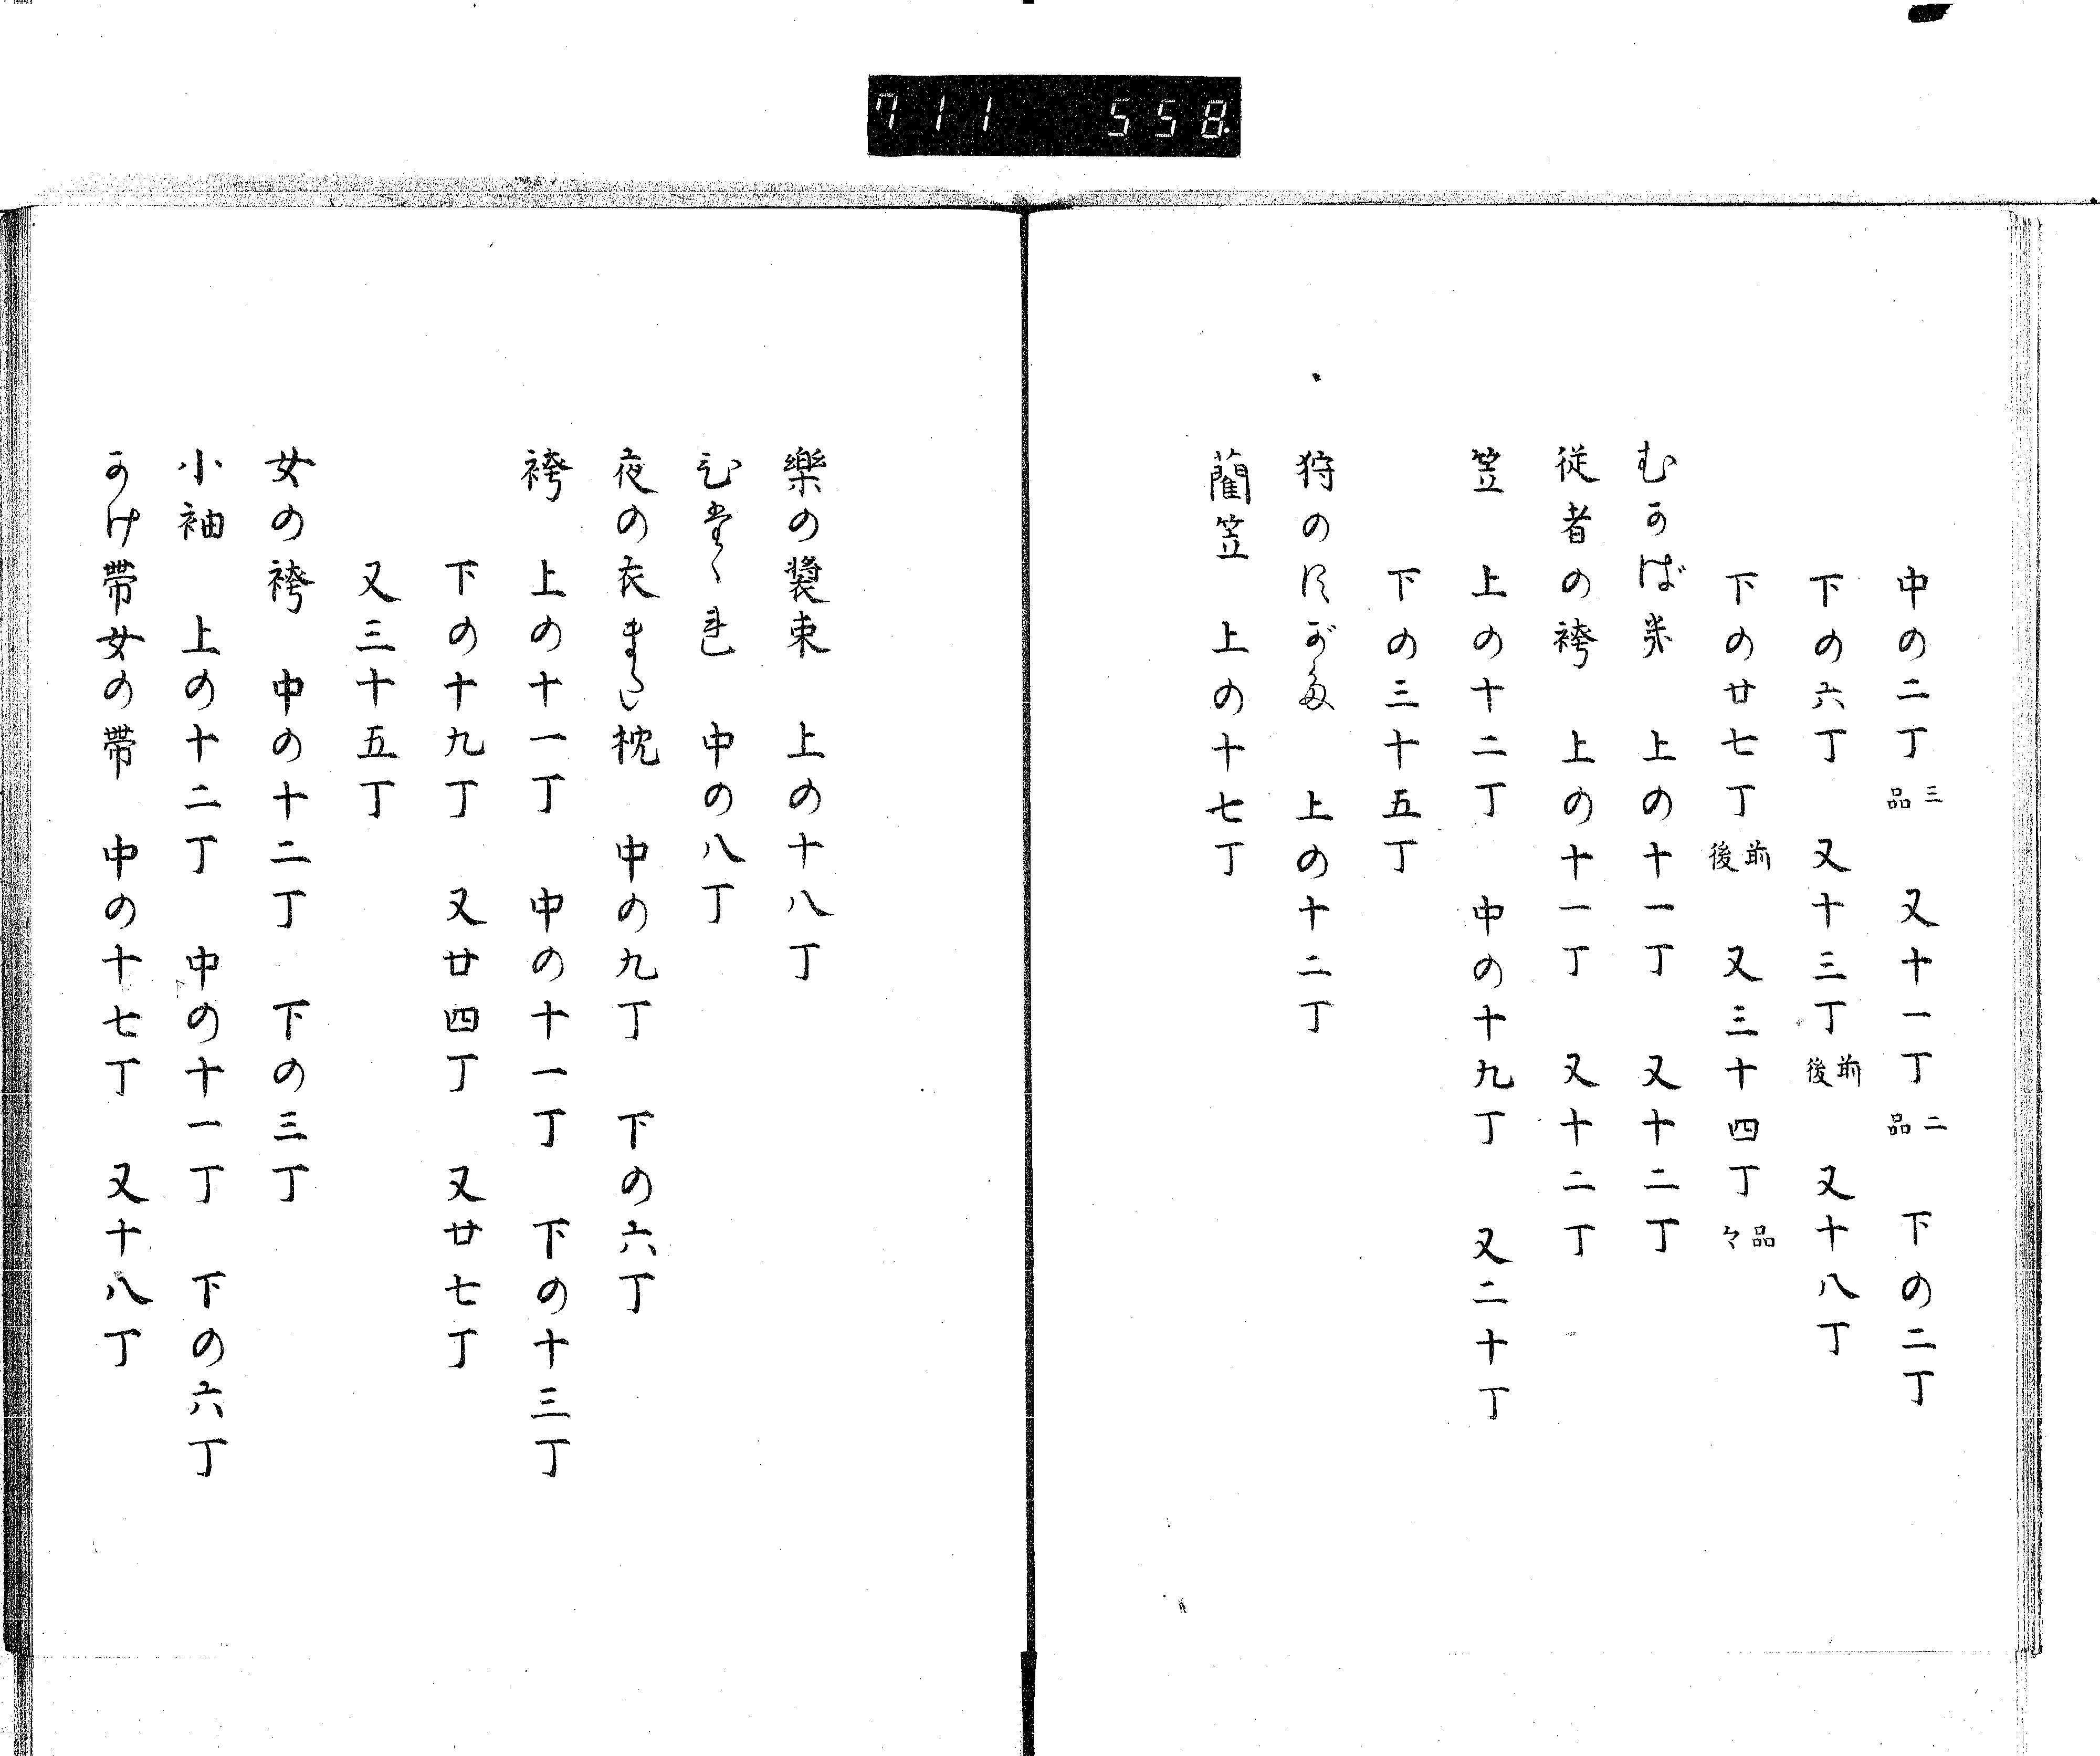 711 558
中の二丁 三品 又十一丁 二品 下の二丁
下の六丁 又十三丁 前後 又十八丁
下の廿七丁 前後 又三十四丁 品々
むかばき 上の十一丁 又十二丁
従者の袴 上の十一丁 又十二丁
笠 上の十二丁 中の十九丁 又二十丁
下の三十五丁
狩のすがた 上の十二丁
藺笠 上の十七丁
樂の裝束 上の十八丁
ひたゝれ 中の八丁
夜の衣また枕 中の九丁 下の六丁
袴 上の十一丁 中の十一丁 下の十三丁
下の十九丁 又廿四丁 又廿七丁
又三十五丁
女の袴 中の十二丁 下の三丁
小袖 上の十二丁 中の十一丁 下の六丁
かけ帶女の帶 中の十七丁 又十八丁